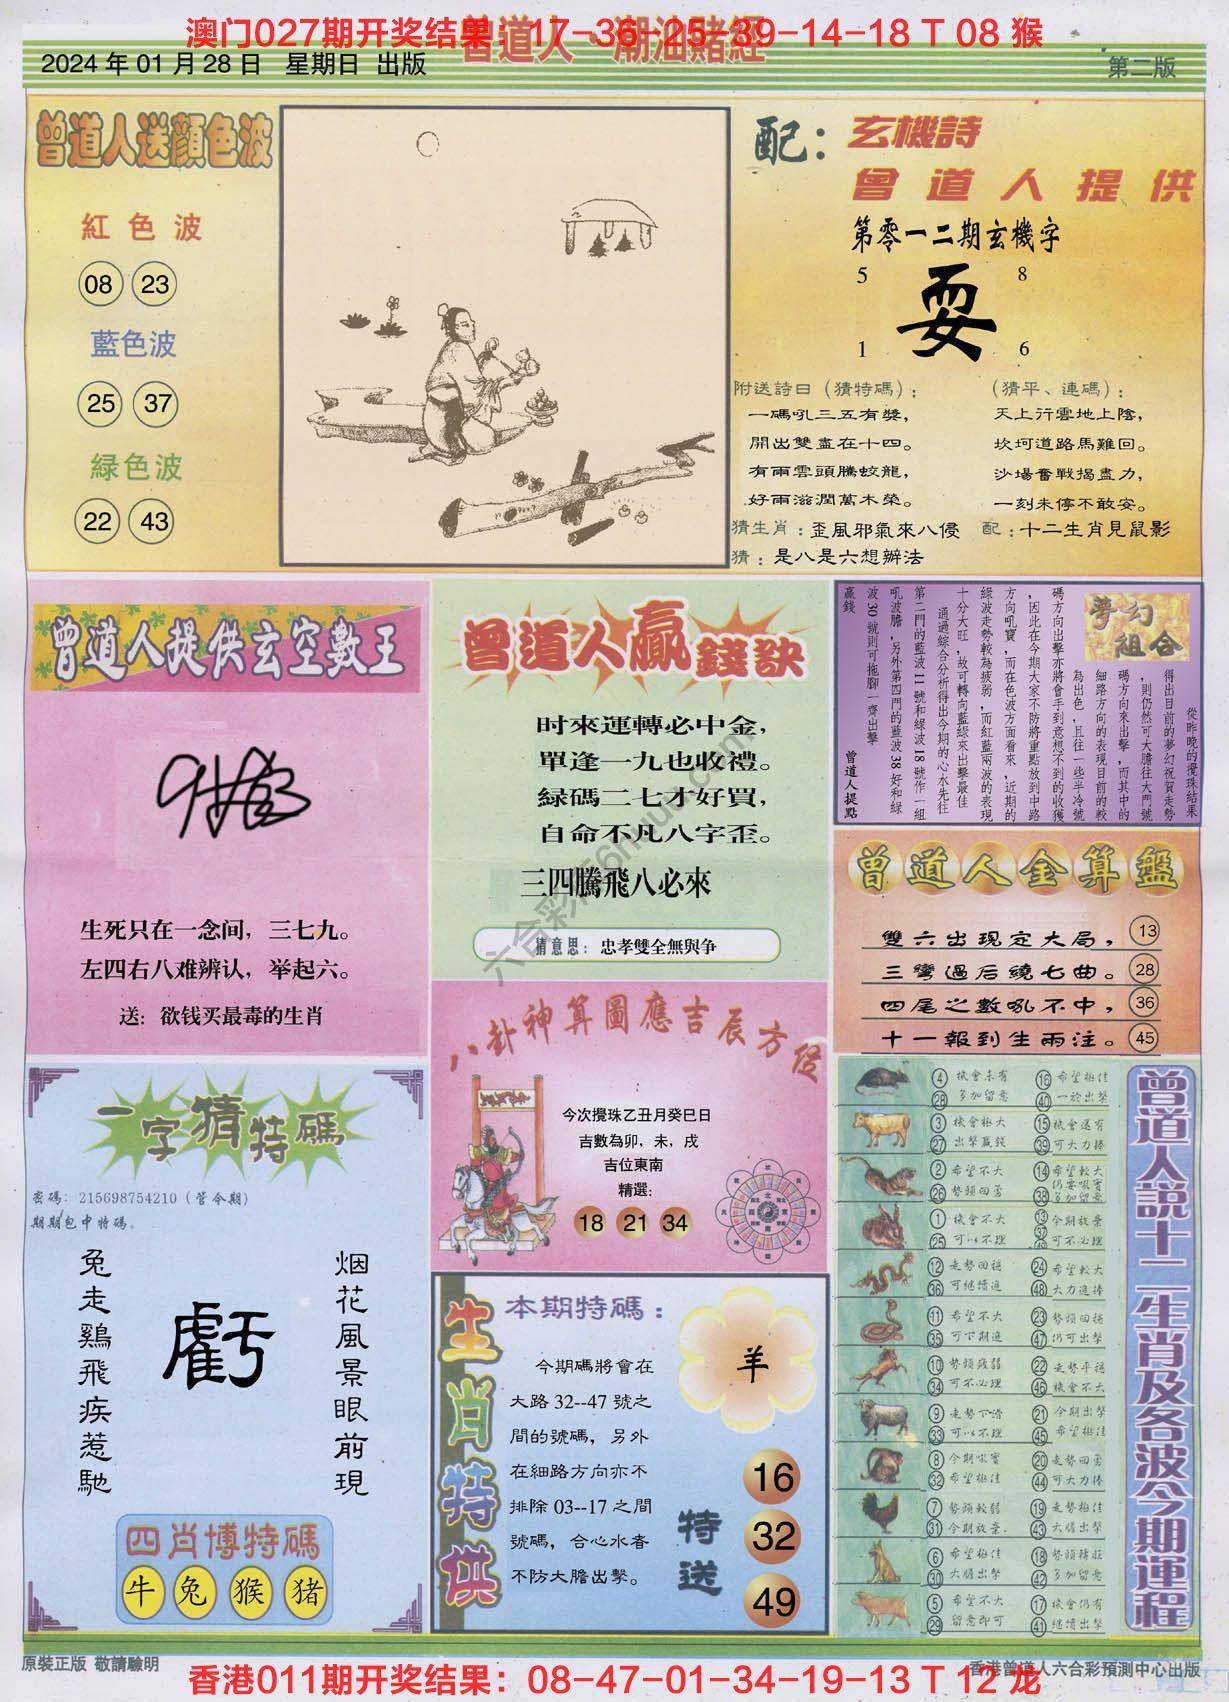 澳门027期开奖结果：17-36-25-39-14-18 T 08 猴
曾道人·潮汕賭經
2024 年 01 月 28 日 星期日 出版
第二版
曾道人送顏色波
紅色波
08 23
藍色波
25 37
緑色波
22 43
配：玄機詩
曾道人提供
第零一二期玄機字
5 8
耍
1 6
附送詩曰（猜特碼）：
一碼吼三五有獎，
開出雙盡在十四。
有雨雲頭騰蛟龍，
好雨滋潤萬木榮。
（猜平、連碼）：
天上行雲地上陰，
坎坷道路馬難回。
沙場奮戰揭盡力，
一刻未停不敢安。
猜生肖：歪風邪氣來八侵
配：十二生肖見鼠影
猜：是八是六想辦法
曾道人提供玄空數王
生死只在一念间，三七九。
左四右八难辨认，举起六。
送：欲钱买最毒的生肖
曾道人贏錢訣
时來運轉必中金，
單逢一九也收禮。
緑碼二七才好買，
自命不凡八字歪。
三四騰飛八必來
猜意思：忠孝雙全無與争
夢幻組合
從昨晚的攪珠結果
得出目前的夢幻祝賀走勢
，則仍然可大膽往大門號
碼方向來出擊，而其中的
細路方向的表現目前的較
為出色，且往一些半冷號
碼方向出擊亦將會手到意想不到的收獲
，因此在今期大家不防將重點放到中路
方向吼寶，而在色波方面看來，近期的
綠波走勢較為疲弱，而紅藍兩波的表現
十分大旺，故可轉向藍綠來出擊最佳
通過綜合分析得出今期的心水先往
第二門的藍波 11 號和綠波 18 號作一組
吼波膽，另外第四門的藍波 38 好和綠
波 30 號則可拖腳一齊出擊
贏錢
曾道人提點
曾道人金算盤
雙六出現定大局，13
三彎過后繞七曲。28
四尾之數吼不中，36
十一報到生雨注。45
八卦神算圖應吉辰方位
今次攪珠乙丑月癸巳日
吉數為卯，未，戌
吉位東南
精選：
18 21 34
一字猜特碼
密碼：215698754210（管今期）
期期包中特碼。
兔走鷄飛疾惹馳
虧
烟花風景眼前現
四肖博特碼
牛 兔 猴 猪
生肖特供
本期特碼：
羊
今期碼將會在
大路 32--47 號之
間的號碼，另外
在細路方向亦不
排除 03--17 之間
號碼，合心水者
不防大膽出擊。
特送
16
32
49
曾道人説十二生肖及各波今期運程
4 機會未有 16 希望極佳
28 多加留意 40 一於出擊
3 機會極大 15 機會還有
27 出擊贏錢 39 可大力捧
2 希望不大 14 希望較大
仍要吼實
26 勢頭回勇 38 多加留意
1 機會不大 13 今期放棄
25 可以不理 37 49 可不必理
12 走勢回穩 24 希望較大
36 可繼續進 48 大力進捧
11 希望不大 23 勢頭回穩
35 可下期進 47 仍可出擊
10 勢頭疲弱 22 走勢平穩
34 可不必理 46 機會不大
9 走勢下滑 21 今期出擊
33 可以不理 45 希望極佳
8 今期吼實 20 走勢回勇
32 希望極佳 44 可大力捧
7 勢頭較弱 19 走勢極佳
31 今期放棄. 43 大膽出擊
6 希望極佳 18 勢頭轉旺
30 大膽出擊 42 多加留意
5 希望不大 17 機會仍有
29 留意即可 41 繼續出擊
原裝正版 敬請驗明
香港曾道人六合彩預測中心出版
香港011期开奖结果：08-47-01-34-19-13 T 12 龙